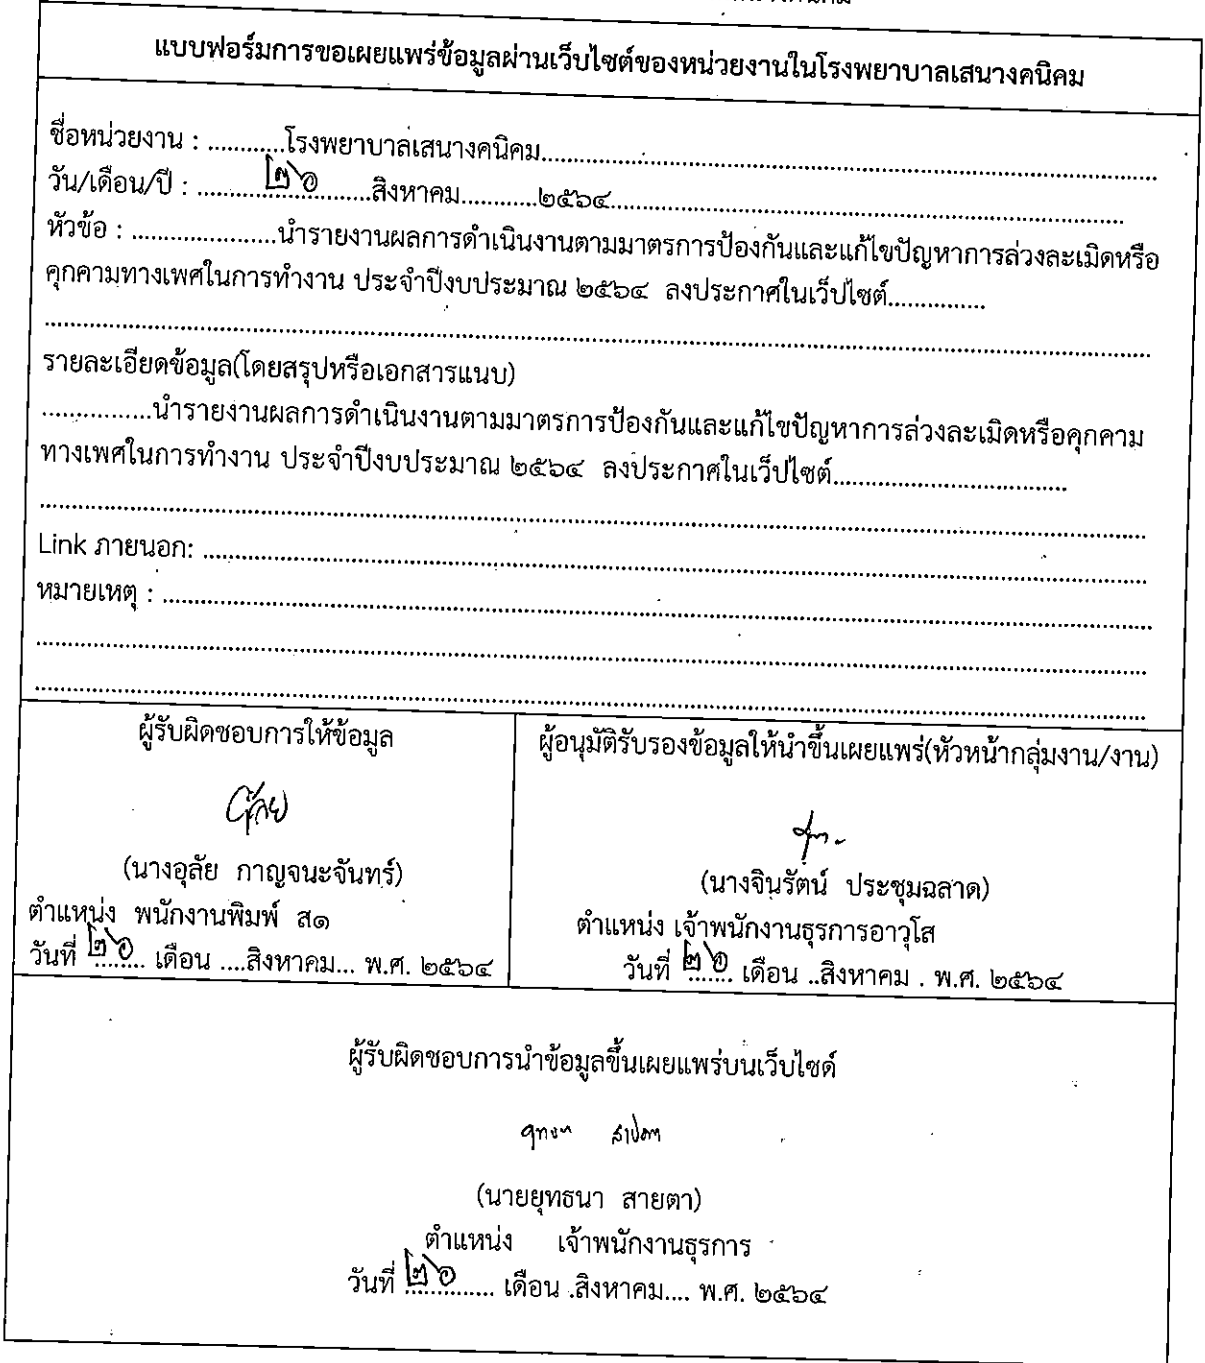 แบบฟอร์มการขอเผยแพร่ข้อมูลผ่านเว็บไซต์ของหน่วยงานในโรงพยาบาลเสนางคนิคม
ชื่อหน่วยงาน : ............โรงพยาบาลเสนางคนิคม............
วัน/เดือน/ปี : ............๒๖............สิงหาคม............๒๕๖๔............
หัวข้อ : ......................นำรายงานผลการดำเนินงานตามมาตรการป้องกันและแก้ไขปัญหาการล่วงละเมิดหรือ
คุกคามทางเพศในการทำงาน ประจำปีงบประมาณ ๒๕๖๔ ลงประกาศในเว็ปไซต์...............
รายละเอียดข้อมูล(โดยสรุปหรือเอกสารแนบ)
.................นำรายงานผลการดำเนินงานตามมาตรการป้องกันและแก้ไขปัญหาการล่วงละเมิดหรือคุกคาม
ทางเพศในการทำงาน ประจำปีงบประมาณ ๒๕๖๔ ลงประกาศในเว็ปไซต์....................................
Link ภายนอก: ............
หมายเหตุ : ............
ผู้รับผิดชอบการให้ข้อมูล
อุลัย
(นางอุลัย กาญจนะจันทร์)
ตำแหน่ง พนักงานพิมพ์ ส๑
วันที่ ๒๖ เดือน ....สิงหาคม... พ.ศ. ๒๕๖๔
ผู้อนุมัติรับรองข้อมูลให้นำขึ้นเผยแพร่(หัวหน้ากลุ่มงาน/งาน)
(นางจินรัตน์ ประชุมฉลาด)
ตำแหน่ง เจ้าพนักงานธุรการอาวุโส
วันที่ ๒๖ เดือน ..สิงหาคม . พ.ศ. ๒๕๖๔
ผู้รับผิดชอบการนำข้อมูลขึ้นเผยแพร่บนเว็บไซด์
ยุทธนา สายตา
(นายยุทธนา สายตา)
ตำแหน่ง เจ้าพนักงานธุรการ
วันที่ ๒๖ เดือน .สิงหาคม.... พ.ศ. ๒๕๖๔